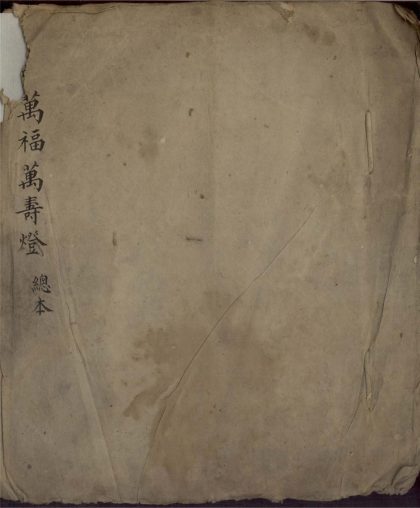 萬福萬壽燈 總本